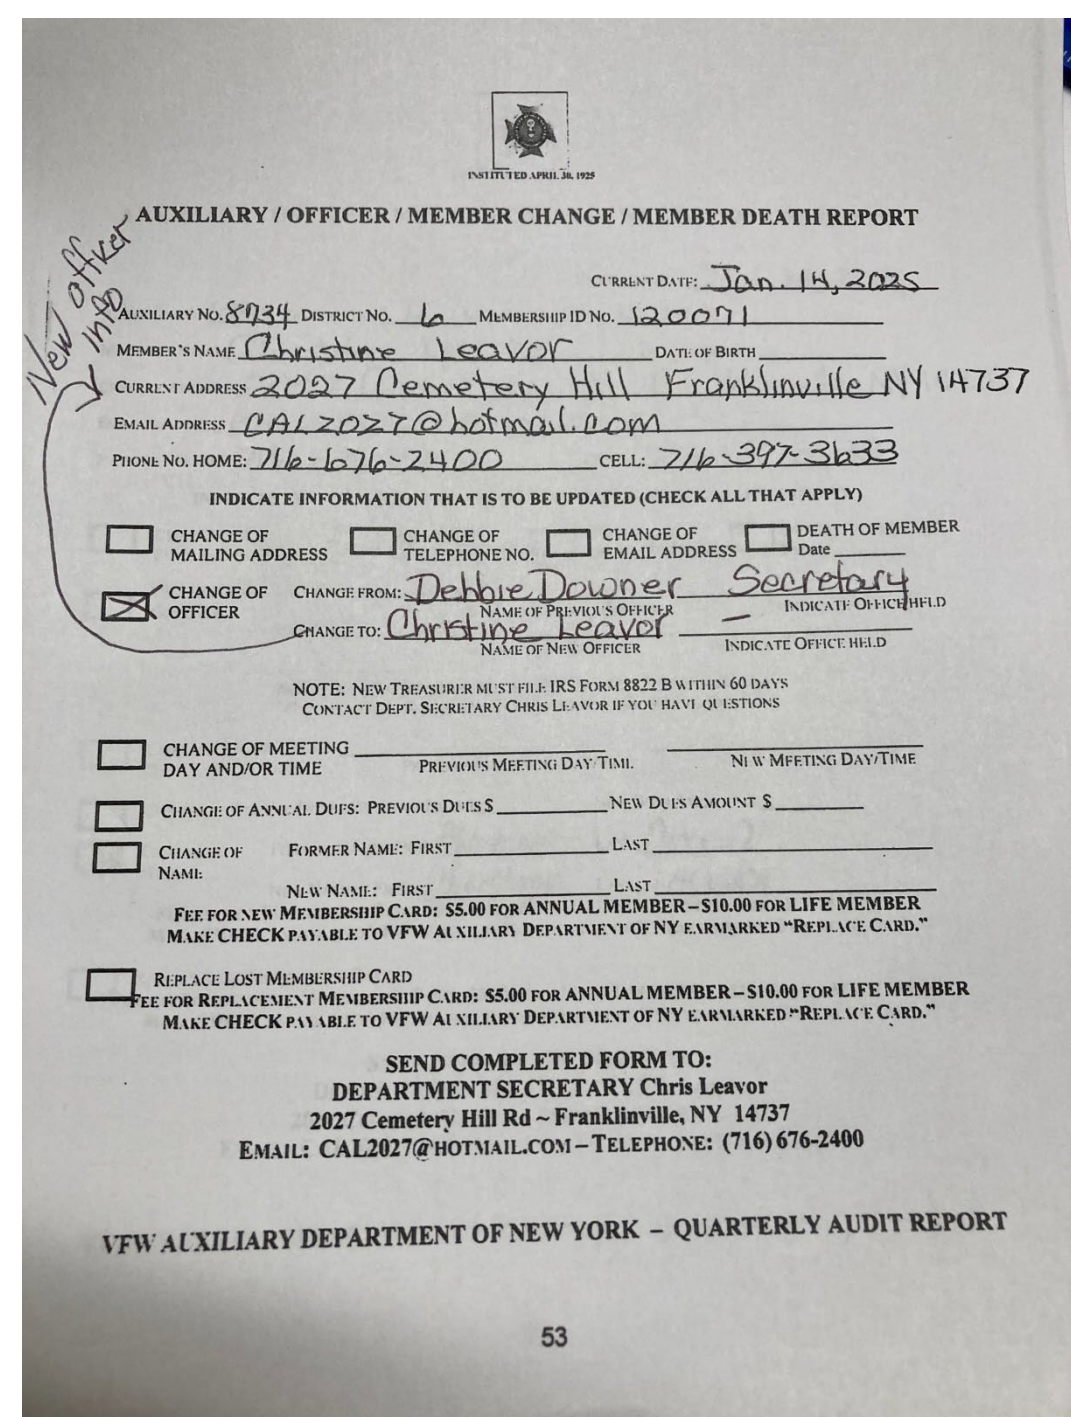 INSTITUTED APRIL 30, 1925
AUXILIARY / OFFICER / MEMBER CHANGE / MEMBER DEATH REPORT
New officer info
CURRENT DATE: Jan. 14, 2025
AUXILIARY NO. 8734 DISTRICT NO. 6 MEMBERSHIP ID NO. 120071
MEMBER'S NAME Christine Leavor DATE OF BIRTH
CURRENT ADDRESS 2027 Cemetery Hill Franklinville NY 14737
EMAIL ADDRESS CAL2027@hotmail.com
PHONE NO. HOME: 716-676-2400 CELL: 716-397-3633
INDICATE INFORMATION THAT IS TO BE UPDATED (CHECK ALL THAT APPLY)
CHANGE OF MAILING ADDRESS CHANGE OF TELEPHONE NO. CHANGE OF EMAIL ADDRESS DEATH OF MEMBER Date
CHANGE OF OFFICER CHANGE FROM: Debbie Downer Secretary
NAME OF PREVIOUS OFFICER INDICATE OFFICE HELD
CHANGE TO: Christine Leavor –
NAME OF NEW OFFICER INDICATE OFFICE HELD
NOTE: NEW TREASURER MUST FILE IRS FORM 8822 B WITHIN 60 DAYS
CONTACT DEPT. SECRETARY CHRIS LEAVOR IF YOU HAVE QUESTIONS
CHANGE OF MEETING
DAY AND/OR TIME PREVIOUS MEETING DAY/TIME NEW MEETING DAY/TIME
CHANGE OF ANNUAL DUES: PREVIOUS DUES $ NEW DUES AMOUNT $
CHANGE OF NAME FORMER NAME: FIRST LAST
NEW NAME: FIRST LAST
FEE FOR NEW MEMBERSHIP CARD: $5.00 FOR ANNUAL MEMBER – $10.00 FOR LIFE MEMBER
MAKE CHECK PAYABLE TO VFW AUXILIARY DEPARTMENT OF NY EARMARKED "REPLACE CARD."
REPLACE LOST MEMBERSHIP CARD
FEE FOR REPLACEMENT MEMBERSHIP CARD: $5.00 FOR ANNUAL MEMBER – $10.00 FOR LIFE MEMBER
MAKE CHECK PAYABLE TO VFW AUXILIARY DEPARTMENT OF NY EARMARKED "REPLACE CARD."
SEND COMPLETED FORM TO:
DEPARTMENT SECRETARY Chris Leavor
2027 Cemetery Hill Rd ~ Franklinville, NY 14737
EMAIL: CAL2027@HOTMAIL.COM – TELEPHONE: (716) 676-2400
VFW AUXILIARY DEPARTMENT OF NEW YORK – QUARTERLY AUDIT REPORT
53